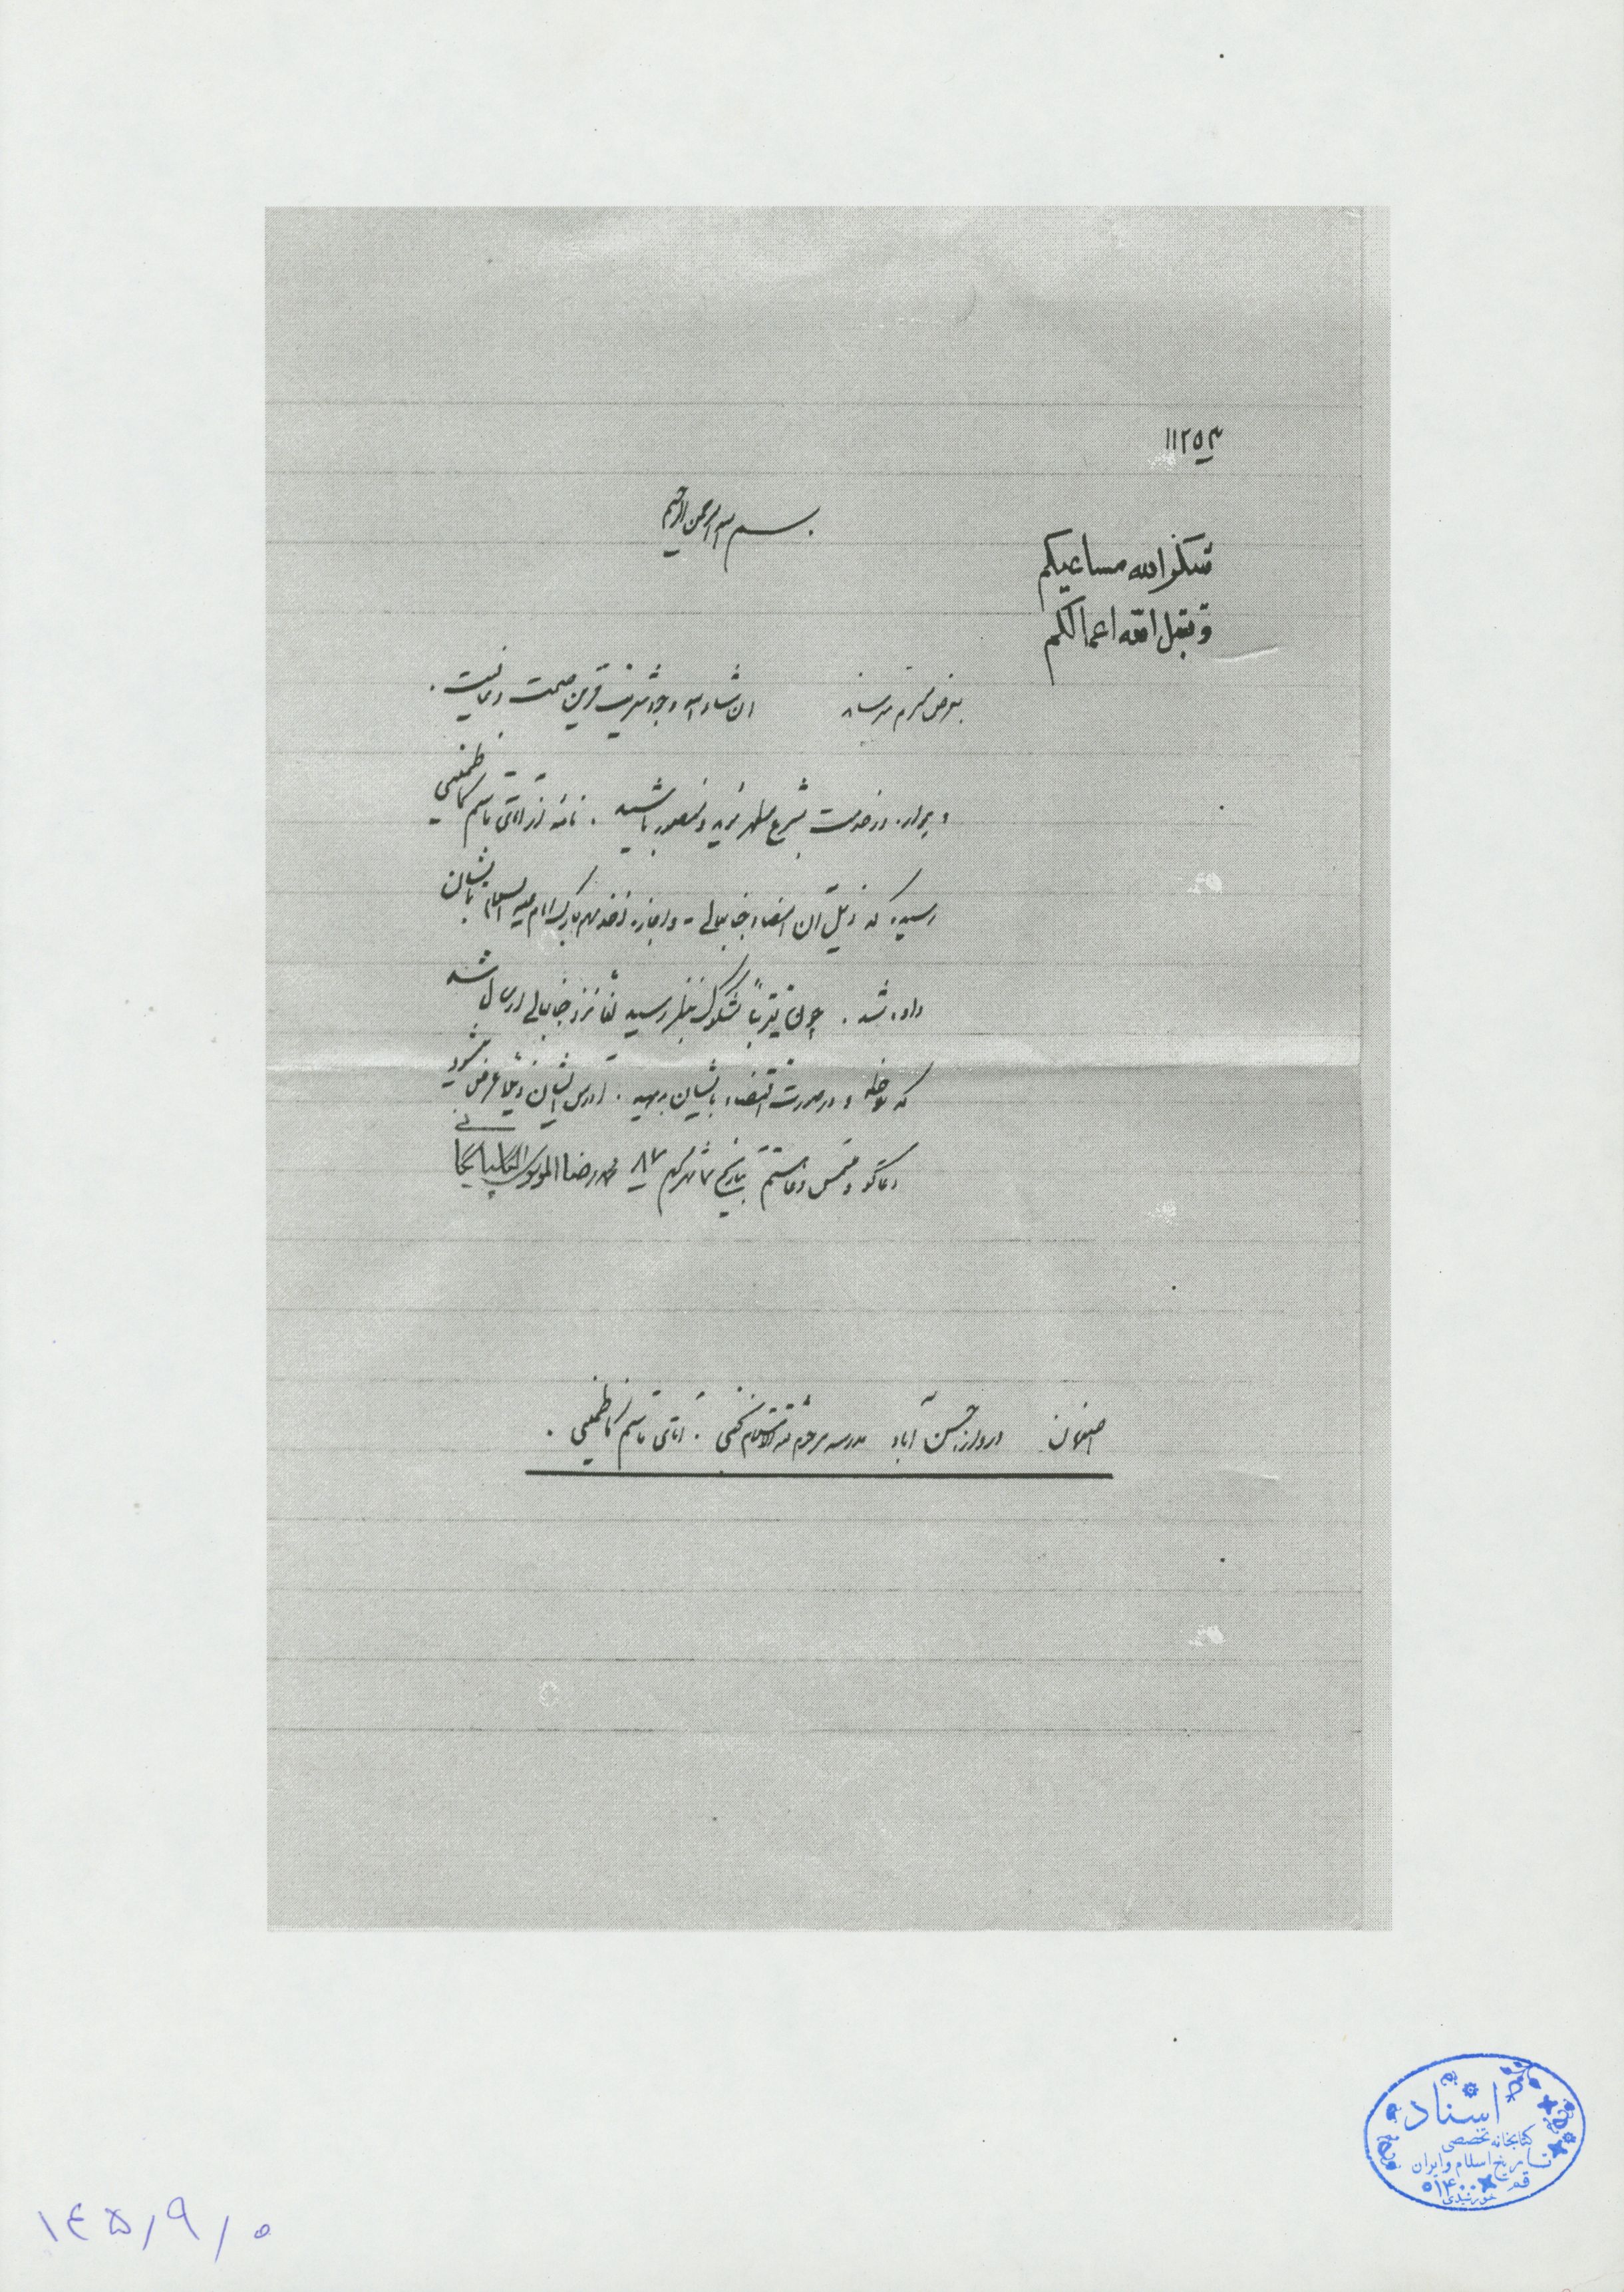 ۱۱۲۵۳
بسم الله الرحمن الرحیم
تشکر الله مساعیکم
و تقبل الله اعمالکم
بعرض محترم میرساند ان شاء الله وجود شریف قرین صحت و عافیت.
و همواره در خدمت بشرع مطهر مؤید و منصور باشید. نامه از آقای قاسم کاظمینی
رسیده که ذیل آن امضاء جنابعالی و اجازه اخذ سهم مبارک امام علیه السلام بایشان
داده شد. چون تقریباً مشکوک بنظر رسید لفاً نزد جنابعالی ارسال شد
که ملاحظه و در صورت اقتضاء بایشان بدهید. آدرس ایشان ذیلاً عرض میشود
دعاگو و ملتمس دعا هستم بتاریخ ۸۷ محمدرضا الموسوی الگلپایگانی
اصفهان دروازه حسن آباد مدرسه مرحوم ثقة الاسلام نجفی. آقای قاسم کاظمینی.
اسناد
کتابخانه تخصصی
تاریخ اسلام و ایران
قم
۱۴۵/۹/۰